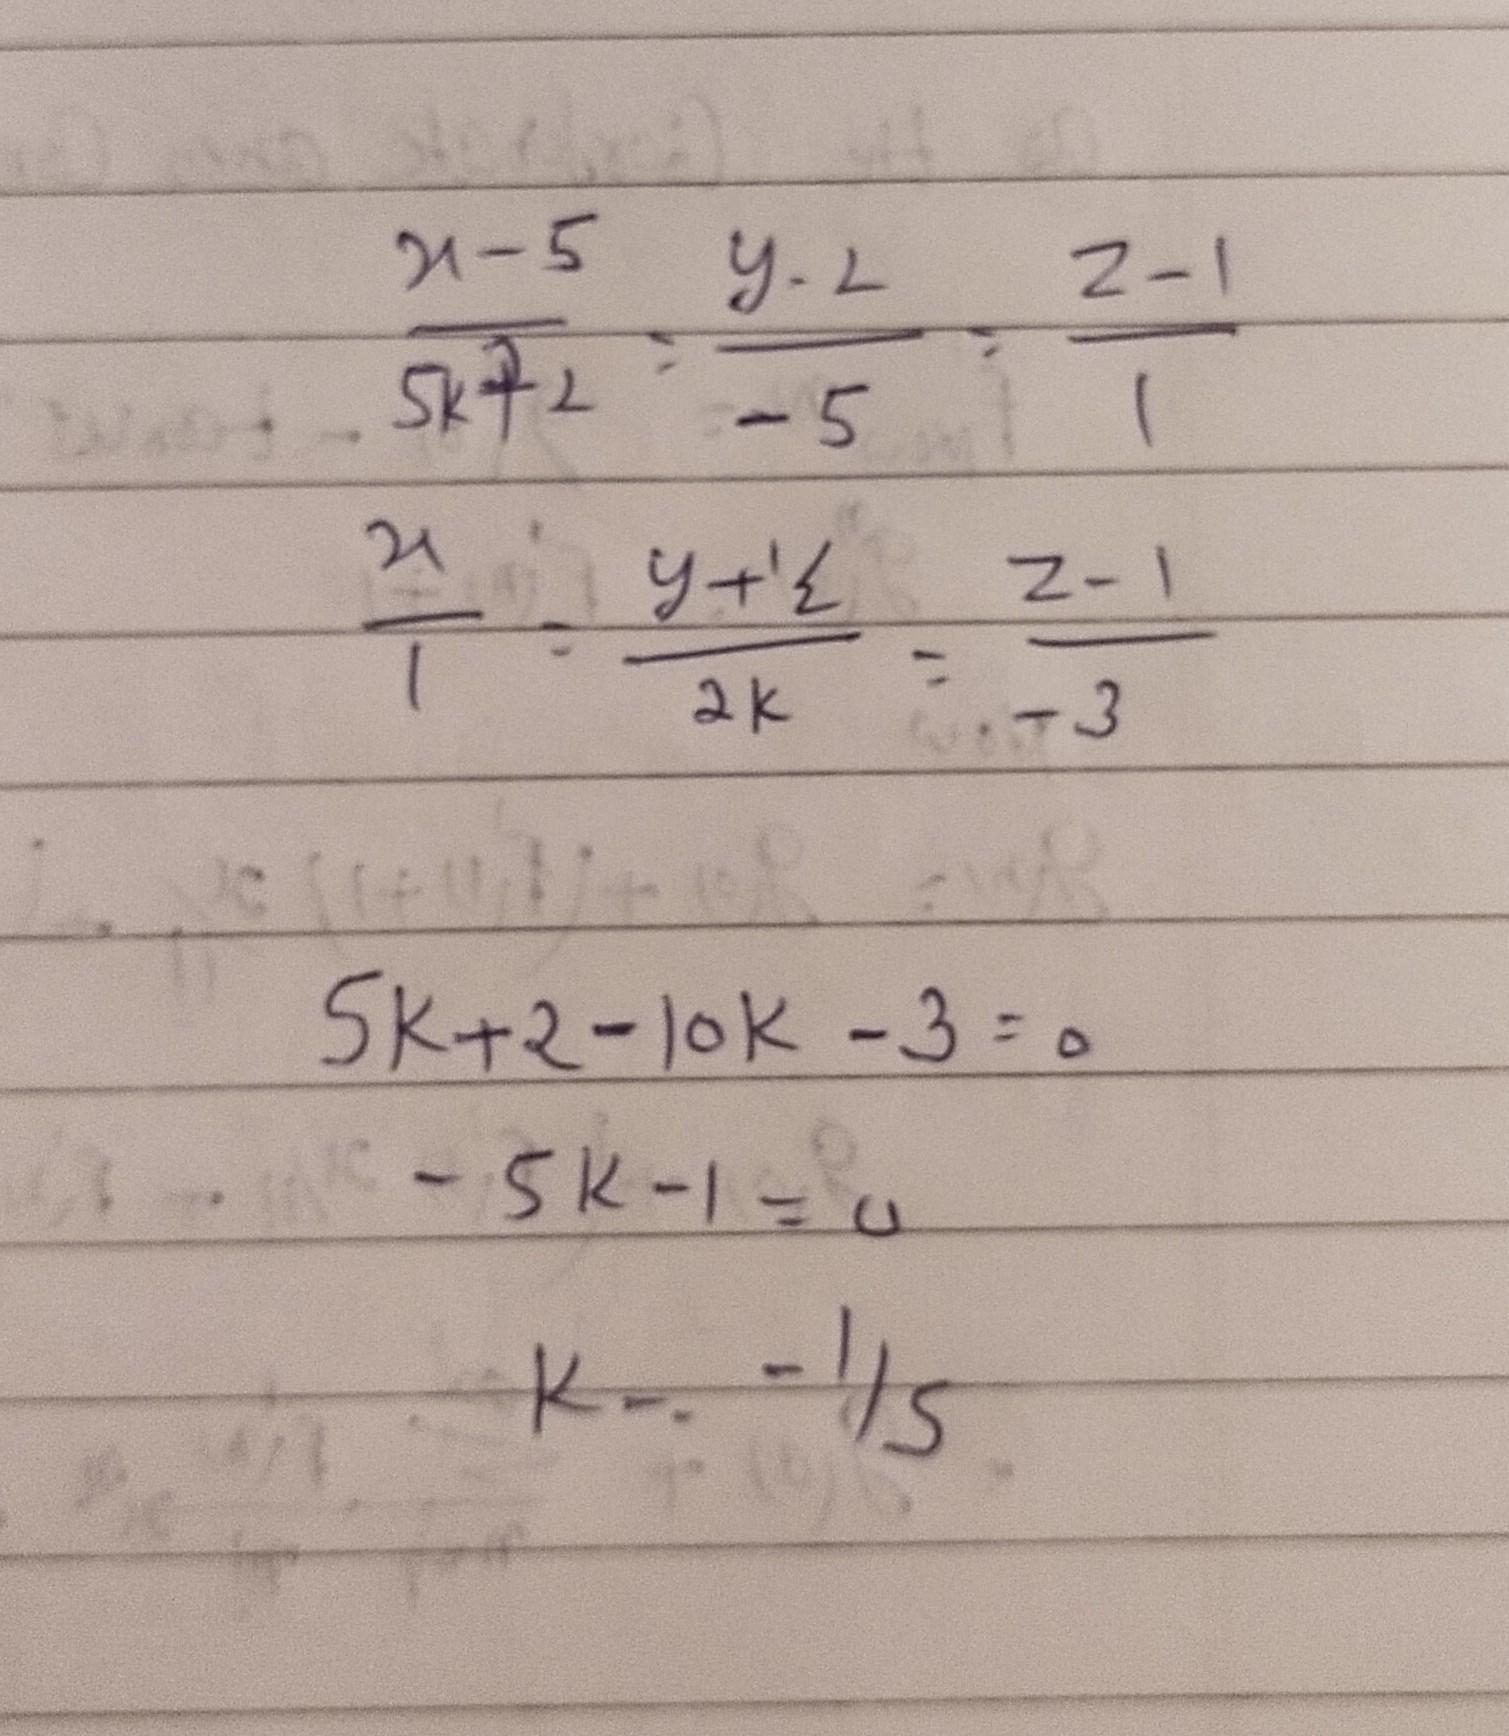 x-5/5k+2 = y-2/-5 = z-1/1
x/1 = y+1/2/2k = z-1/-3
5k+2-10k-3=0
-5k-1=0
k= -1/5